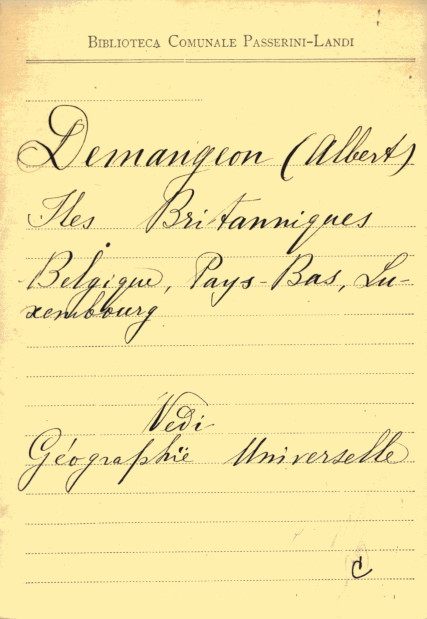 BIBLIOTECA COMUNALE PASSERINI-LANDI
Demangeon (Albert)
Iles Britanniques
Belgique, Pays-Bas, Lu-
xembourg
Vedi
Géographie Universelle